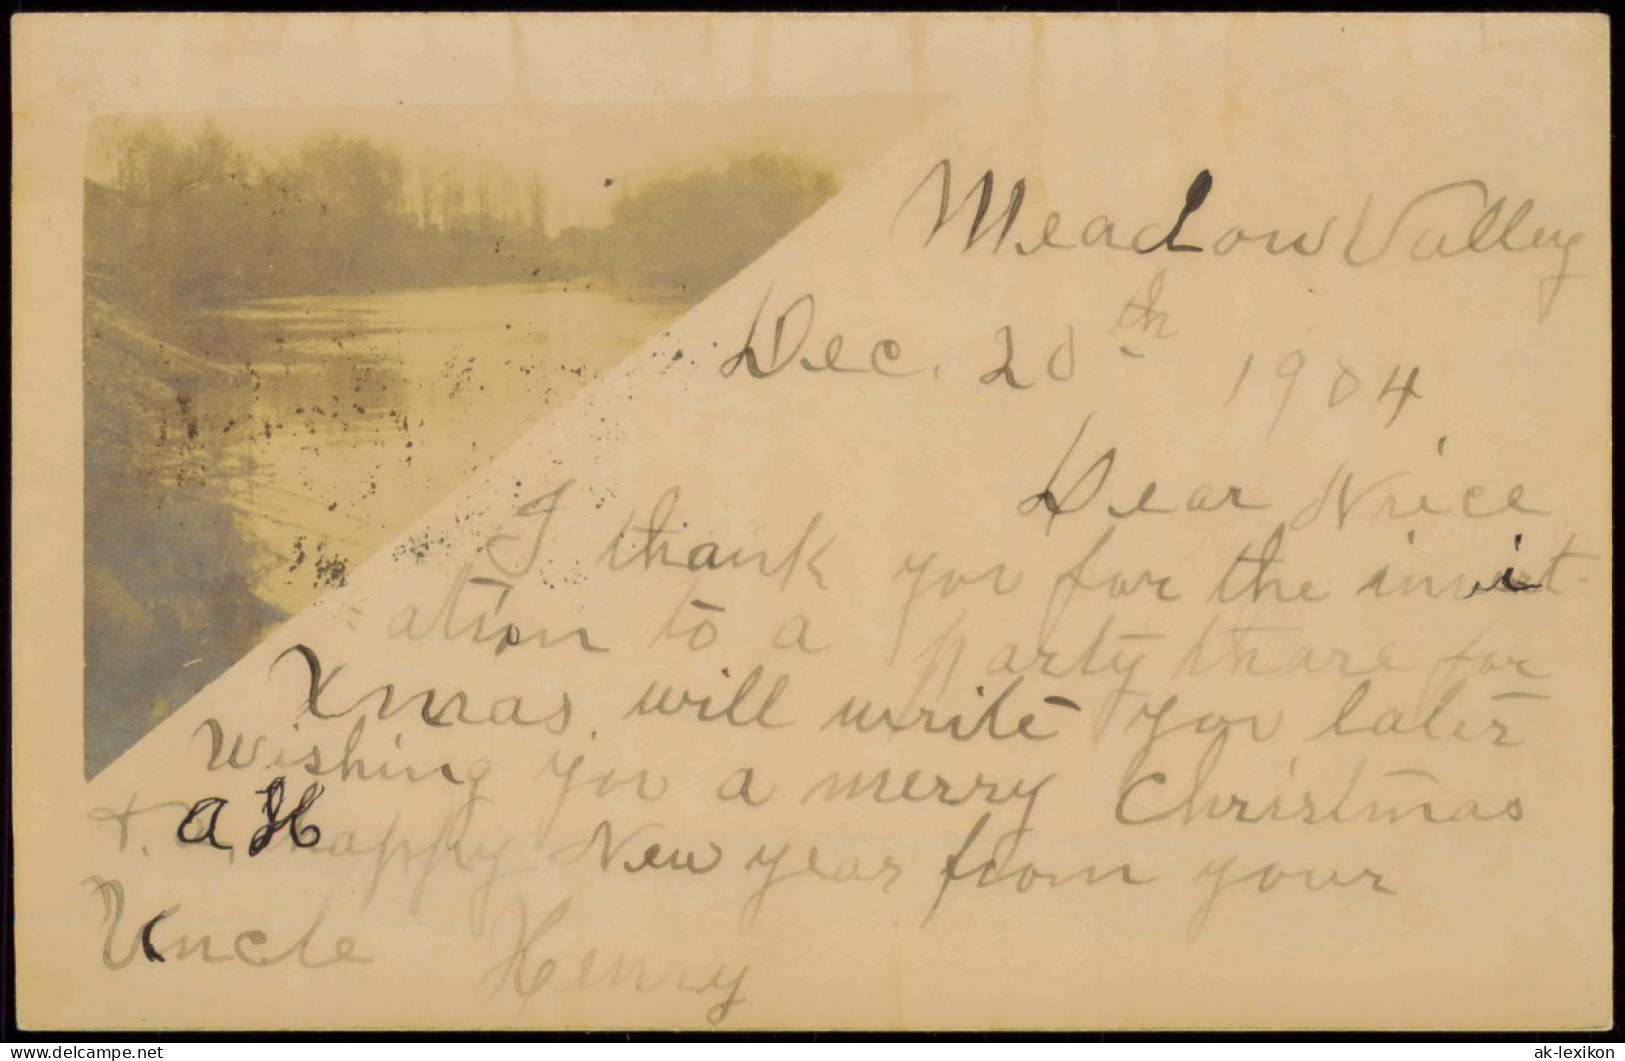 Meadow Valley
Dec. 20th 1904
Dear Neice
I thank you for the invit-
=ation to a party thare for
Xmas. will write you later
Wishing you a merry Christmas
+ A Happy New year from your
Uncle Henry
ak-lexikon